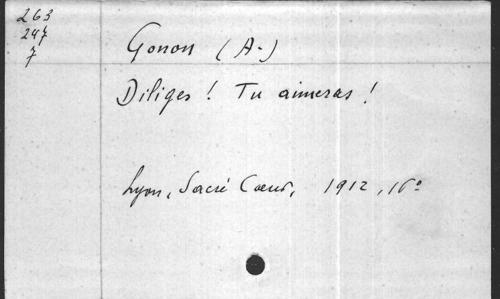 263
247
7
Gonon (A.)
Diliges ! Tu aimeras !
Lyon, Sacré Coeur, 1912, 16°